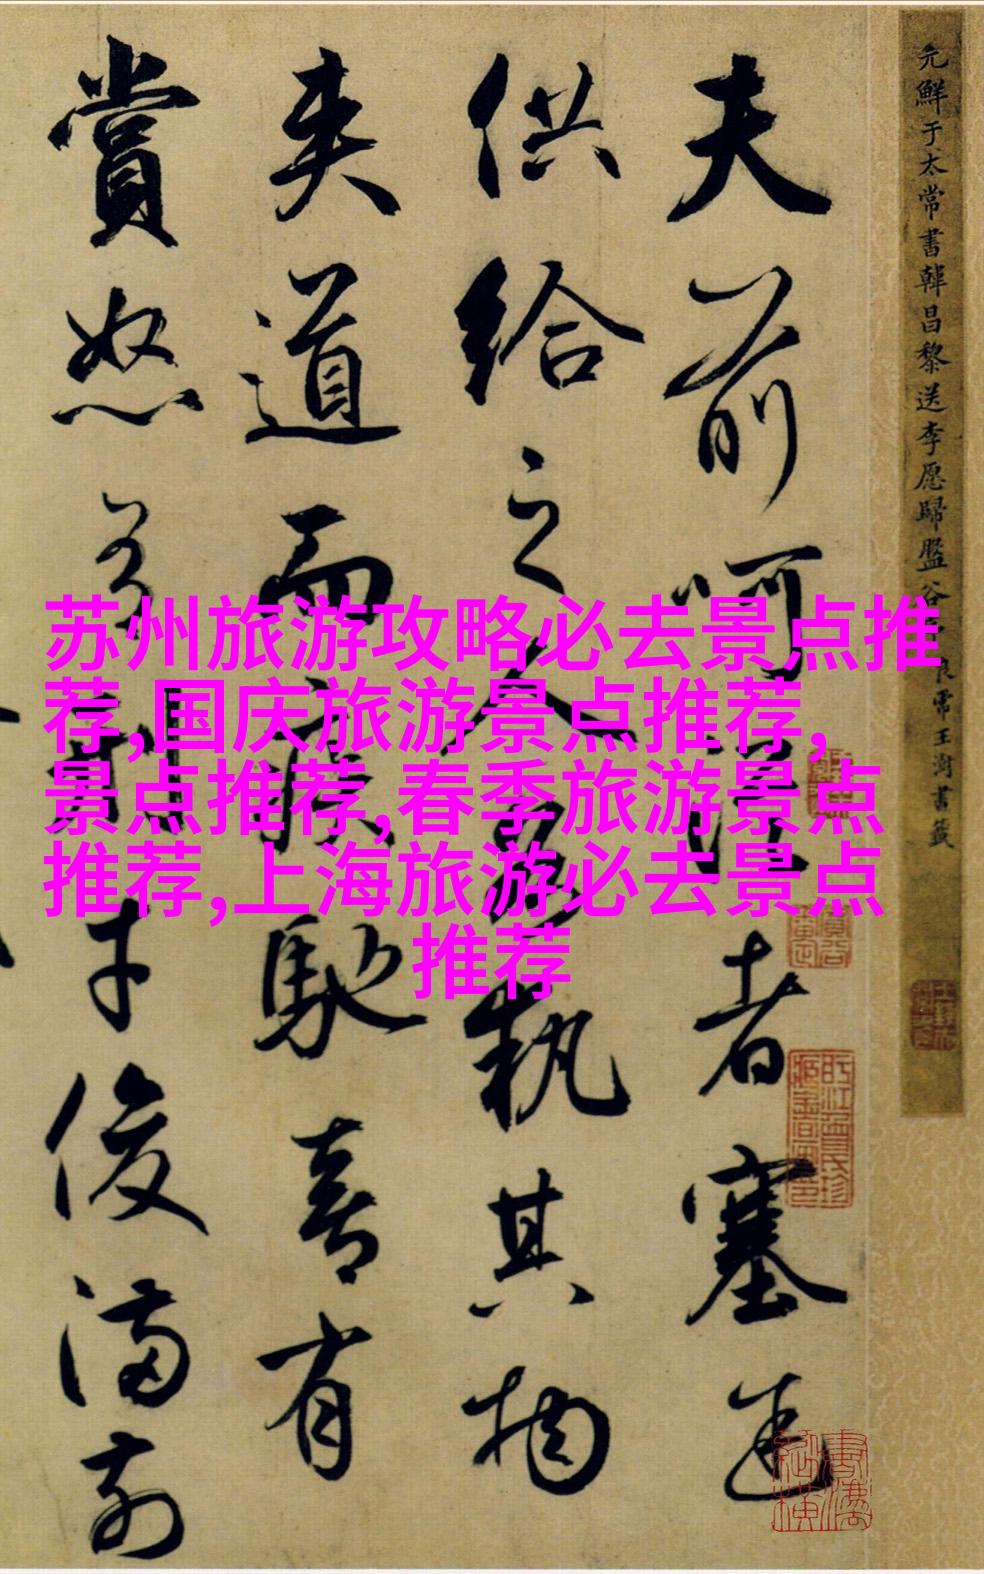 元鮮于太常書韓昌黎送李愿歸盤谷 良常王澍書籤
夫前呵從者塞途
供給之人各執其物
夾道而疾馳喜有
賞怒有刑才俊滿前
苏州旅游攻略必去景点推
荐,国庆旅游景点推荐,
景点推荐,春季旅游景点
推荐,上海旅游必去景点
推荐